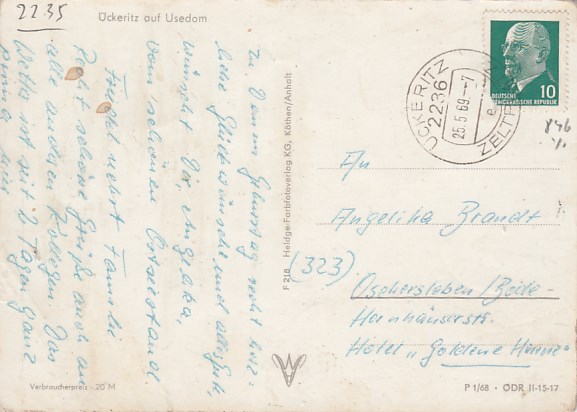 2235
Ückeritz auf Usedom
Zu Deinem Geburtstag recht herz-
liche Glückwünsche und alles Gute
wünscht Dir, Angelika,
vom schönen Ostseestrand
Frecht nebst Familie
Recht schöne Grüße auch an
alle anderen Kollegen. Das
Wetter ist seit 2 Tagen ganz
prima hier
Verbraucherpreis -20 M
F 218 Heldge-Farbfotoverlag KG, Köthen/Anhalt
ÜCKERITZ
2236
25.5.69.--7
e
DEUTSCHE
DEMOKRATISCHE REPUBLIK
10
846
An
Angelika Brandt
(323)
Oschersleben/Bode
Hornhäuserstr.
Hotel „Goldene Henne"
P 1/68 · ÖDR II-15-17